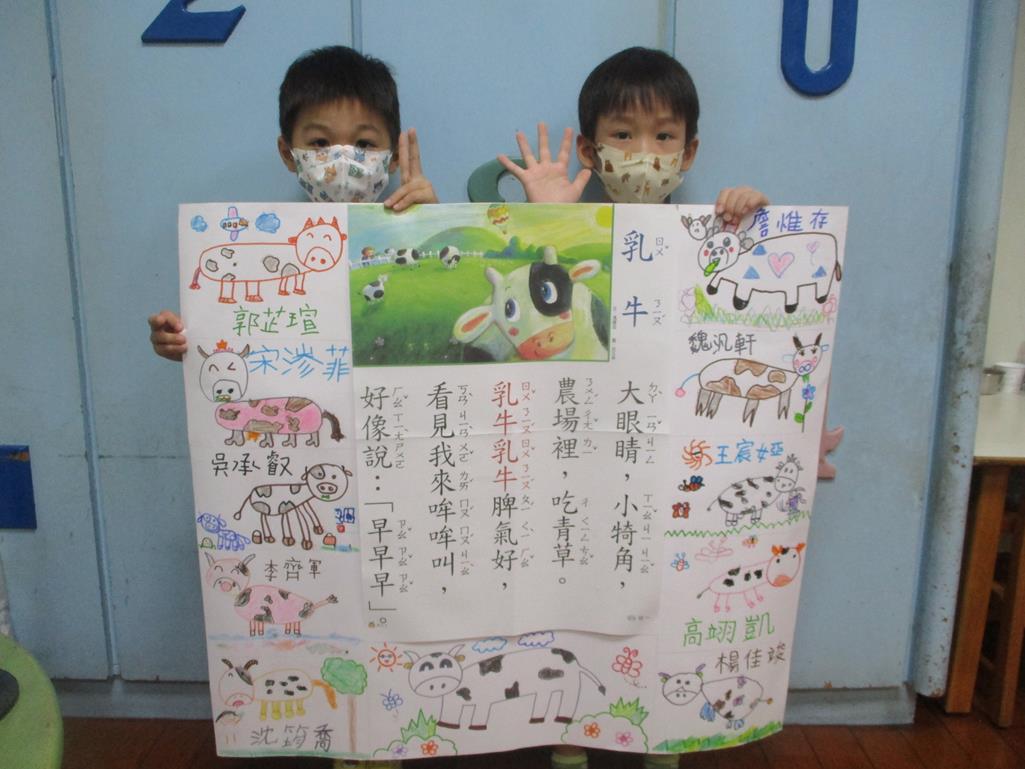 乳牛
大眼睛，小犄角，
農場裡，吃青草。
乳牛乳牛脾氣好，
看見我來哞哞叫，
好像說：「早早早」。
郭芷瑄
宋滲菲
吳承叡
李齊軍
沈筠喬
詹惟存
魏汎軒
王宸婭
高翊凱
楊佳竣